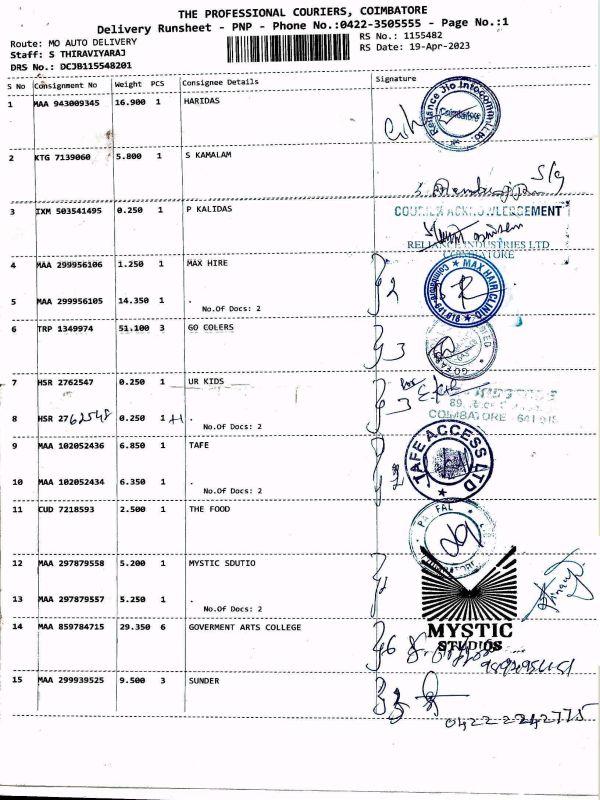 THE PROFESSIONAL COURIERS, COIMBATORE
Delivery Runsheet - PNP - Phone No.:0422-3505555 - Page No.:1
Route: MO AUTO DELIVERY
Staff: S THIRAVIYARAJ
DRS No.: DCJB115548201
RS No.: 1155482
RS Date: 19-Apr-2023
S No Consignment No Weight PCS Consignee Details Signature
1 MAA 943009345 16.900 1 HARIDAS
Reliance Jio Infocomm Ltd
Coimbatore
2 KTG 7139060 5.800 1 S KAMALAM
S/g
3 IXM 503541495 0.250 1 P KALIDAS
COURIER ACKNOWLERGEMENT
RELIANCE INDUSTRIES LTD
COIMBATORE
4 MAA 299956106 1.250 1 MAX HIRE
2
MAX HAIR CLINIC
Coimbatore 641 018
5 MAA 299956105 14.350 1 .
No.Of Docs: 2
6 TRP 1349974 51.100 3 GO COLERS
3
7 HSR 2762547 0.250 1 UR KIDS
3
8 HSR 2762548 0.250 1 +1 .
No.Of Docs: 2
COIMBATORE - 641 018
9 MAA 102052436 6.850 1 TAFE
TAFE ACCESS LTD
10 MAA 102052434 6.350 1 .
No.Of Docs: 2
11 CUD 7218593 2.500 1 THE FOOD
12 MAA 297879558 5.200 1 MYSTIC SDUTIO
13 MAA 297879557 5.250 1 .
No.Of Docs: 2
MYSTIC
STUDIOS
14 MAA 859784715 29.350 6 GOVERMENT ARTS COLLEGE
6
15 MAA 299939525 9.500 3 SUNDER
3
0422 2242775